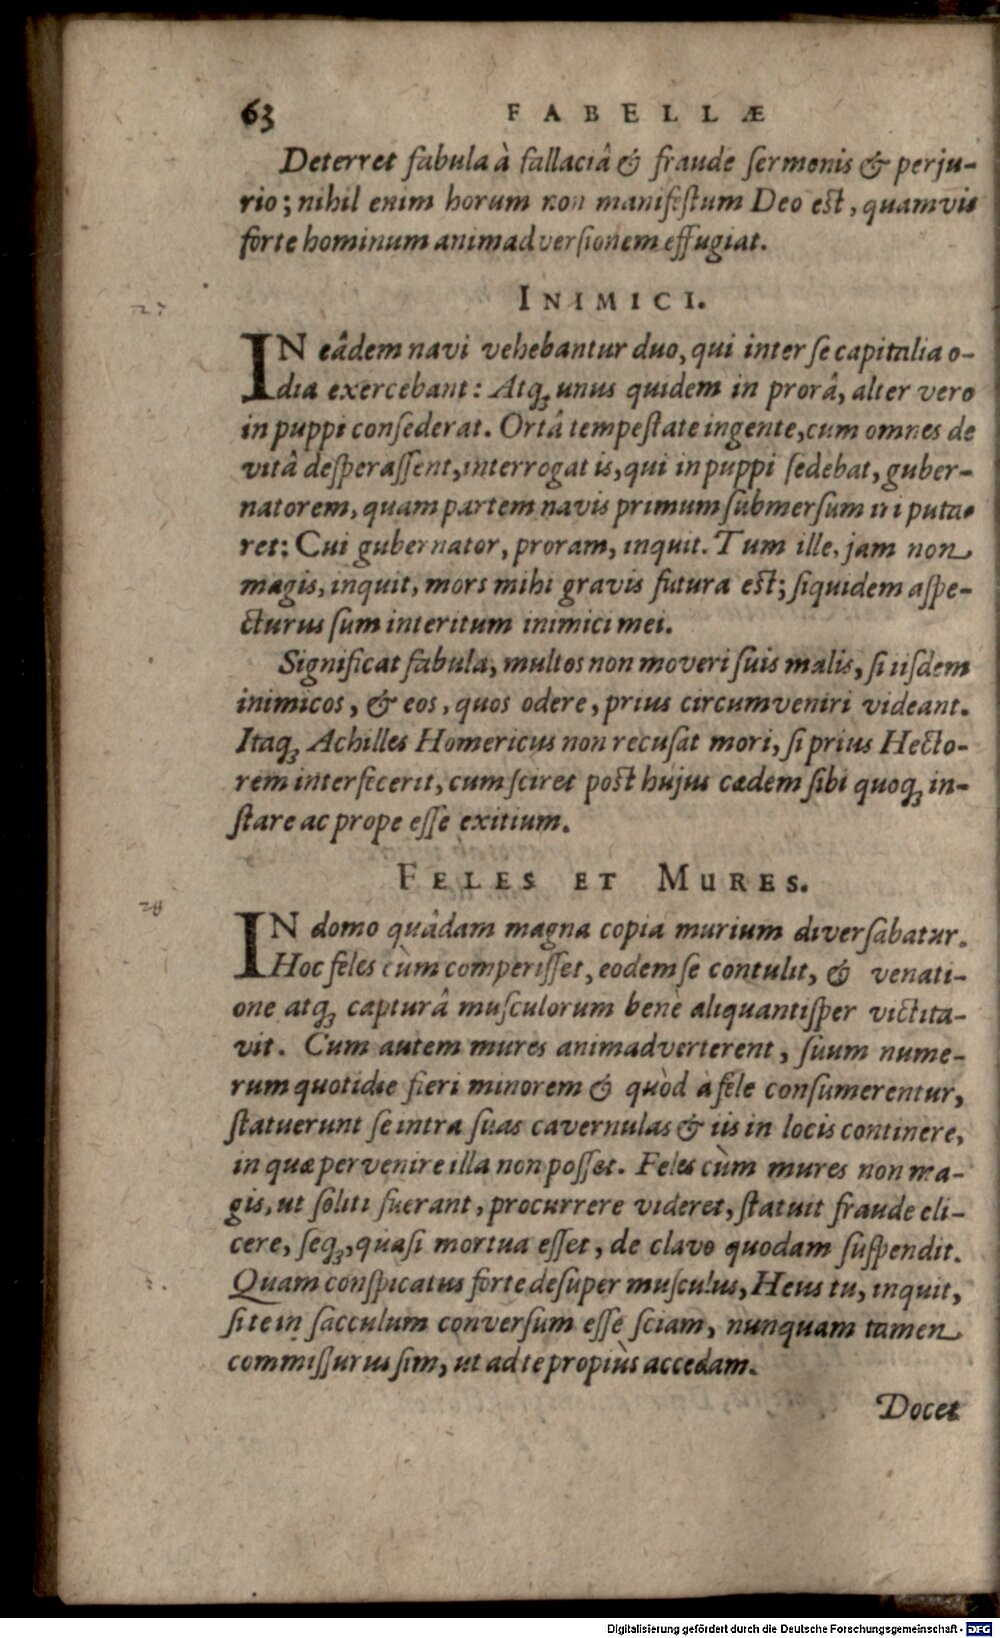 63 FABELLÆ
Deterret fabula à fallaciâ & fraude sermonis & perju-
rio; nihil enim horum non manifestum Deo est, quamvis
forte hominum animadversionem effugiat.
INIMICI.
27
IN eâdem navi vehebantur duo, qui inter se capitalia o-
dia exercebant: Atq; unus quidem in prorâ, alter vero
in puppi consederat. Ortâ tempestate ingente, cum omnes de
vitâ desperassent, interrogat is, qui in puppi sedebat, guber-
natorem, quam partem navis primum submersum iri puta-
ret: Cui gubernator, proram, inquit. Tum ille, jam non
magis, inquit, mors mihi gravis futura est; siquidem aspe-
cturus sum interitum inimici mei.
Significat fabula, multos non moveri suis malis, si iisdem
inimicos, & eos, quos odere, prius circumveniri videant.
Itaq; Achilles Homericus non recusat mori, si prius Hecto-
rem interfecerit, cum sciret post hujus cædem sibi quoq; in-
stare ac prope esse exitium.
FELES ET MURES.
28
IN domo quâdam magna copia murium diversabatur.
Hoc feles cùm comperisset, eodem se contulit, & venati-
one atq; capturâ musculorum bene aliquantisper victita-
vit. Cum autem mures animadverterent, suum nume-
rum quotidie fieri minorem & quòd à fele consumerentur,
statuerunt se intra suas cavernulas & iis in locis continere,
in quæ pervenire illa non posset. Feles cùm mures non ma-
gis, ut soliti fuerant, procurrere videret, statuit fraude eli-
cere, seq;, quasi mortua esset, de clavo quodam suspendit.
Quam conspicatus forte desuper musculus, Heus tu, inquit,
si te in sacculum conversum esse sciam, nunquam tamen
commissurus sim, ut ad te propiùs accedam.
Docet
Digitalisierung gefördert durch die Deutsche Forschungsgemeinschaft - DFG